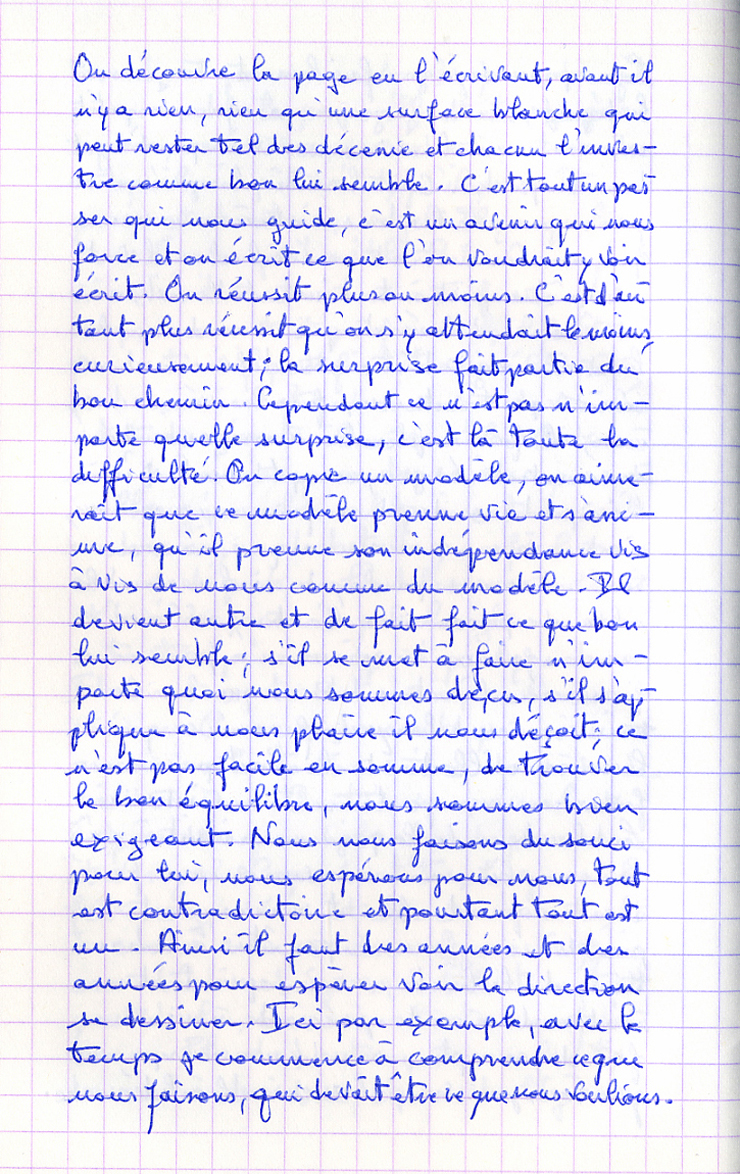 On découvre la page en l'écrivant, avant il
n'y a rien, rien qu'une surface blanche qui
peut rester tel des décenie et chacun l'inves-
tre comme bon lui semble. C'est tout un pas
ser qui nous guide, c'est un avenir qui nous
force et on écrit ce que l'on voudrait y voir
écrit. On réussit plus ou moins. C'est d'au
tant plus réussit qu'on s'y attendait le moins,
curieusement ; la surprise fait partie du
bon chemin. Cependant ce n'est pas n'im-
porte quelle surprise, c'est là toute la
difficulté. On copie un modèle, on aime-
rait que ce modèle prenne vie et s'ani-
me, qu'il prenne son indépendance vis
à vis de nous comme du modèle. Il
devient autre et de fait fait ce que bon
lui semble ; s'il se met à faire n'im-
porte quoi nous sommes déçus, s'il s'ap-
plique à nous plaire il nous déçoit ; ce
n'est pas facile en somme, de trouver
le bon équilibre, nous sommes bien
exigeant. Nous nous faisons du souci
pour lui, nous espérons pour nous, tout
est contradictoire et pourtant tout est
un. Ainsi il faut des années et des
années pour espérer voir la direction
se dessiner. Ici par exemple, avec le
temps je commence à comprendre ce que
nous faisons, qui devait être ce que nous voulions.